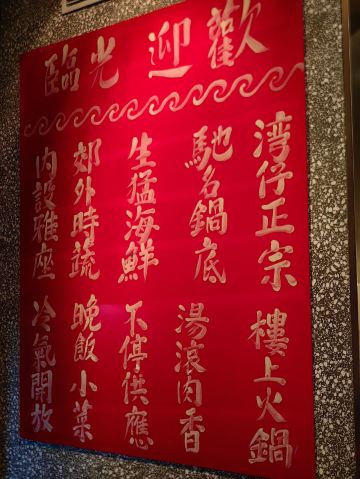 歡迎光臨
湾仔正宗 樓上火鍋
馳名鍋底 湯滾肉香
生猛海鮮 不停供應
郊外時蔬 晚飯小菜
內設雅座 冷氣開放